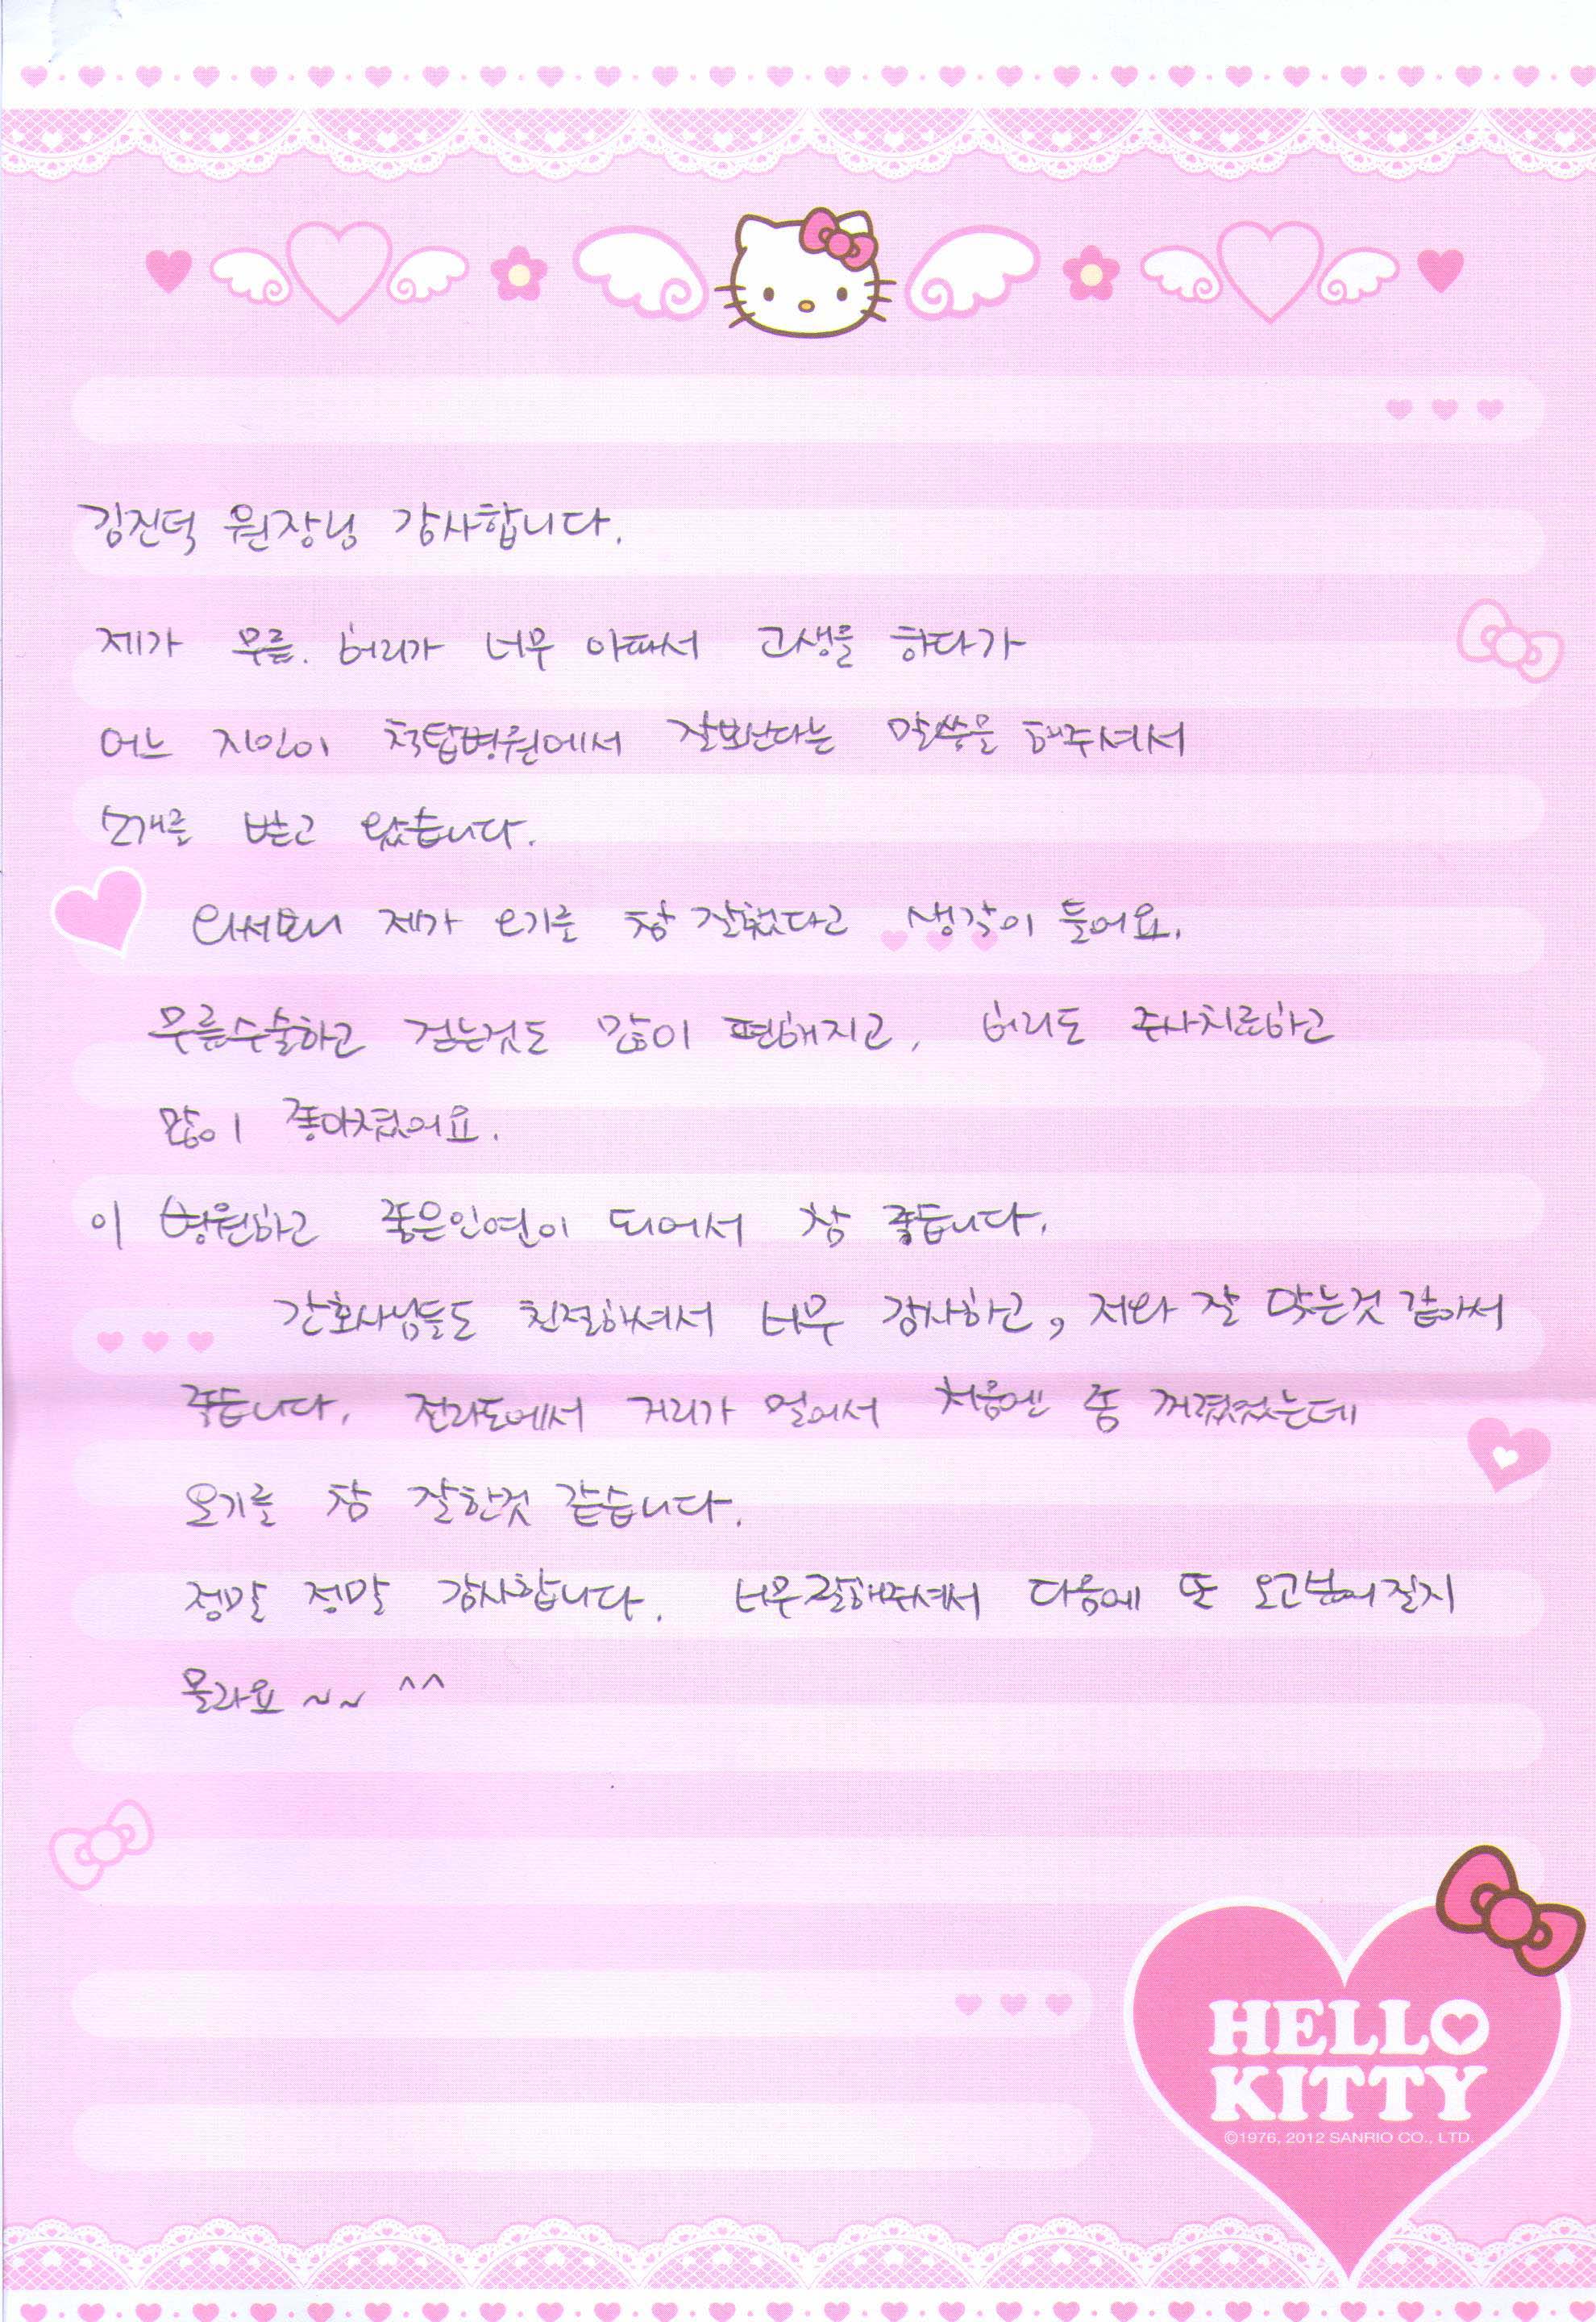 김진덕 원장님 감사합니다.
제가 무릎. 허리가 너무 아파서 고생을 하다가
어느 지인이 척탑병원에서 잘보신다는 말씀을 해주셔서
소개를 받고 왔습니다.
와서보니 제가 오기를 참 잘했다고 생각이 들어요.
무릎수술하고 걷는것도 많이 편해지고, 허리도 주사치료하고
많이 좋아졌어요.
이 병원하고 좋은인연이 되어서 참 좋습니다.
간호사님들도 친절하셔서 너무 감사하고, 저와 잘 맞는것 같아서
좋습니다. 전라도에서 거리가 멀어서 처음엔 좀 꺼렸었는데
오기를 참 잘한것 같습니다.
정말 정말 감사합니다. 너무잘해주셔서 다음에 또 오고싶어질지
몰라요 ~~ ^^
HELLO
KITTY
©1976, 2012 SANRIO CO., LTD.